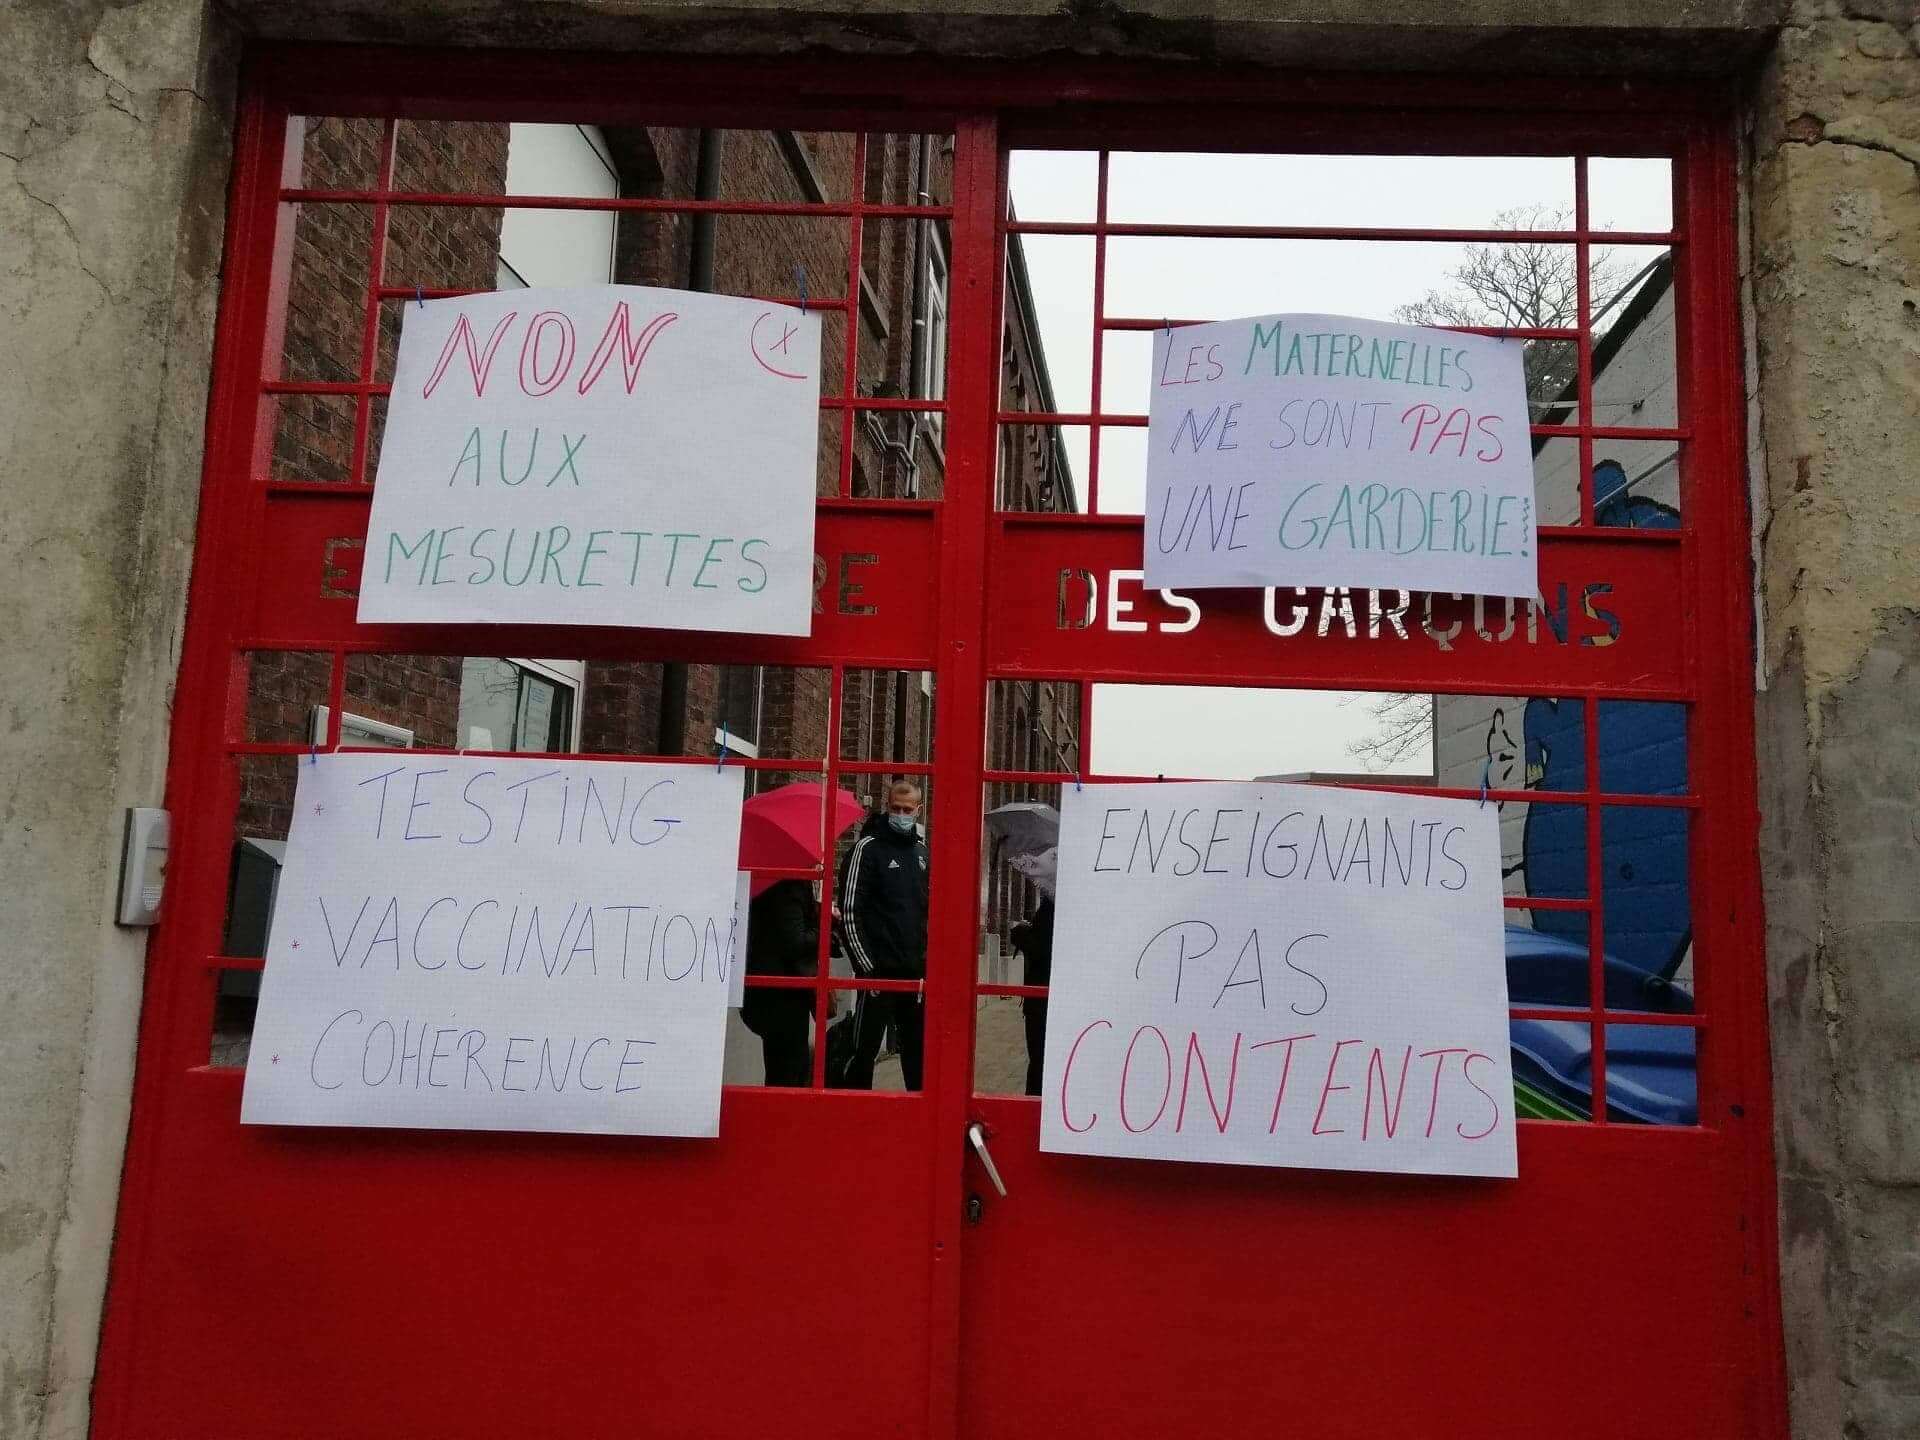 NON
AUX
MESURETTES
LES MATERNELLES
NE SONT PAS
UNE GARDERIE!
DES GARÇONS
* TESTING
* VACCINATION
* COHÉRENCE
ENSEIGNANTS
PAS
CONTENTS